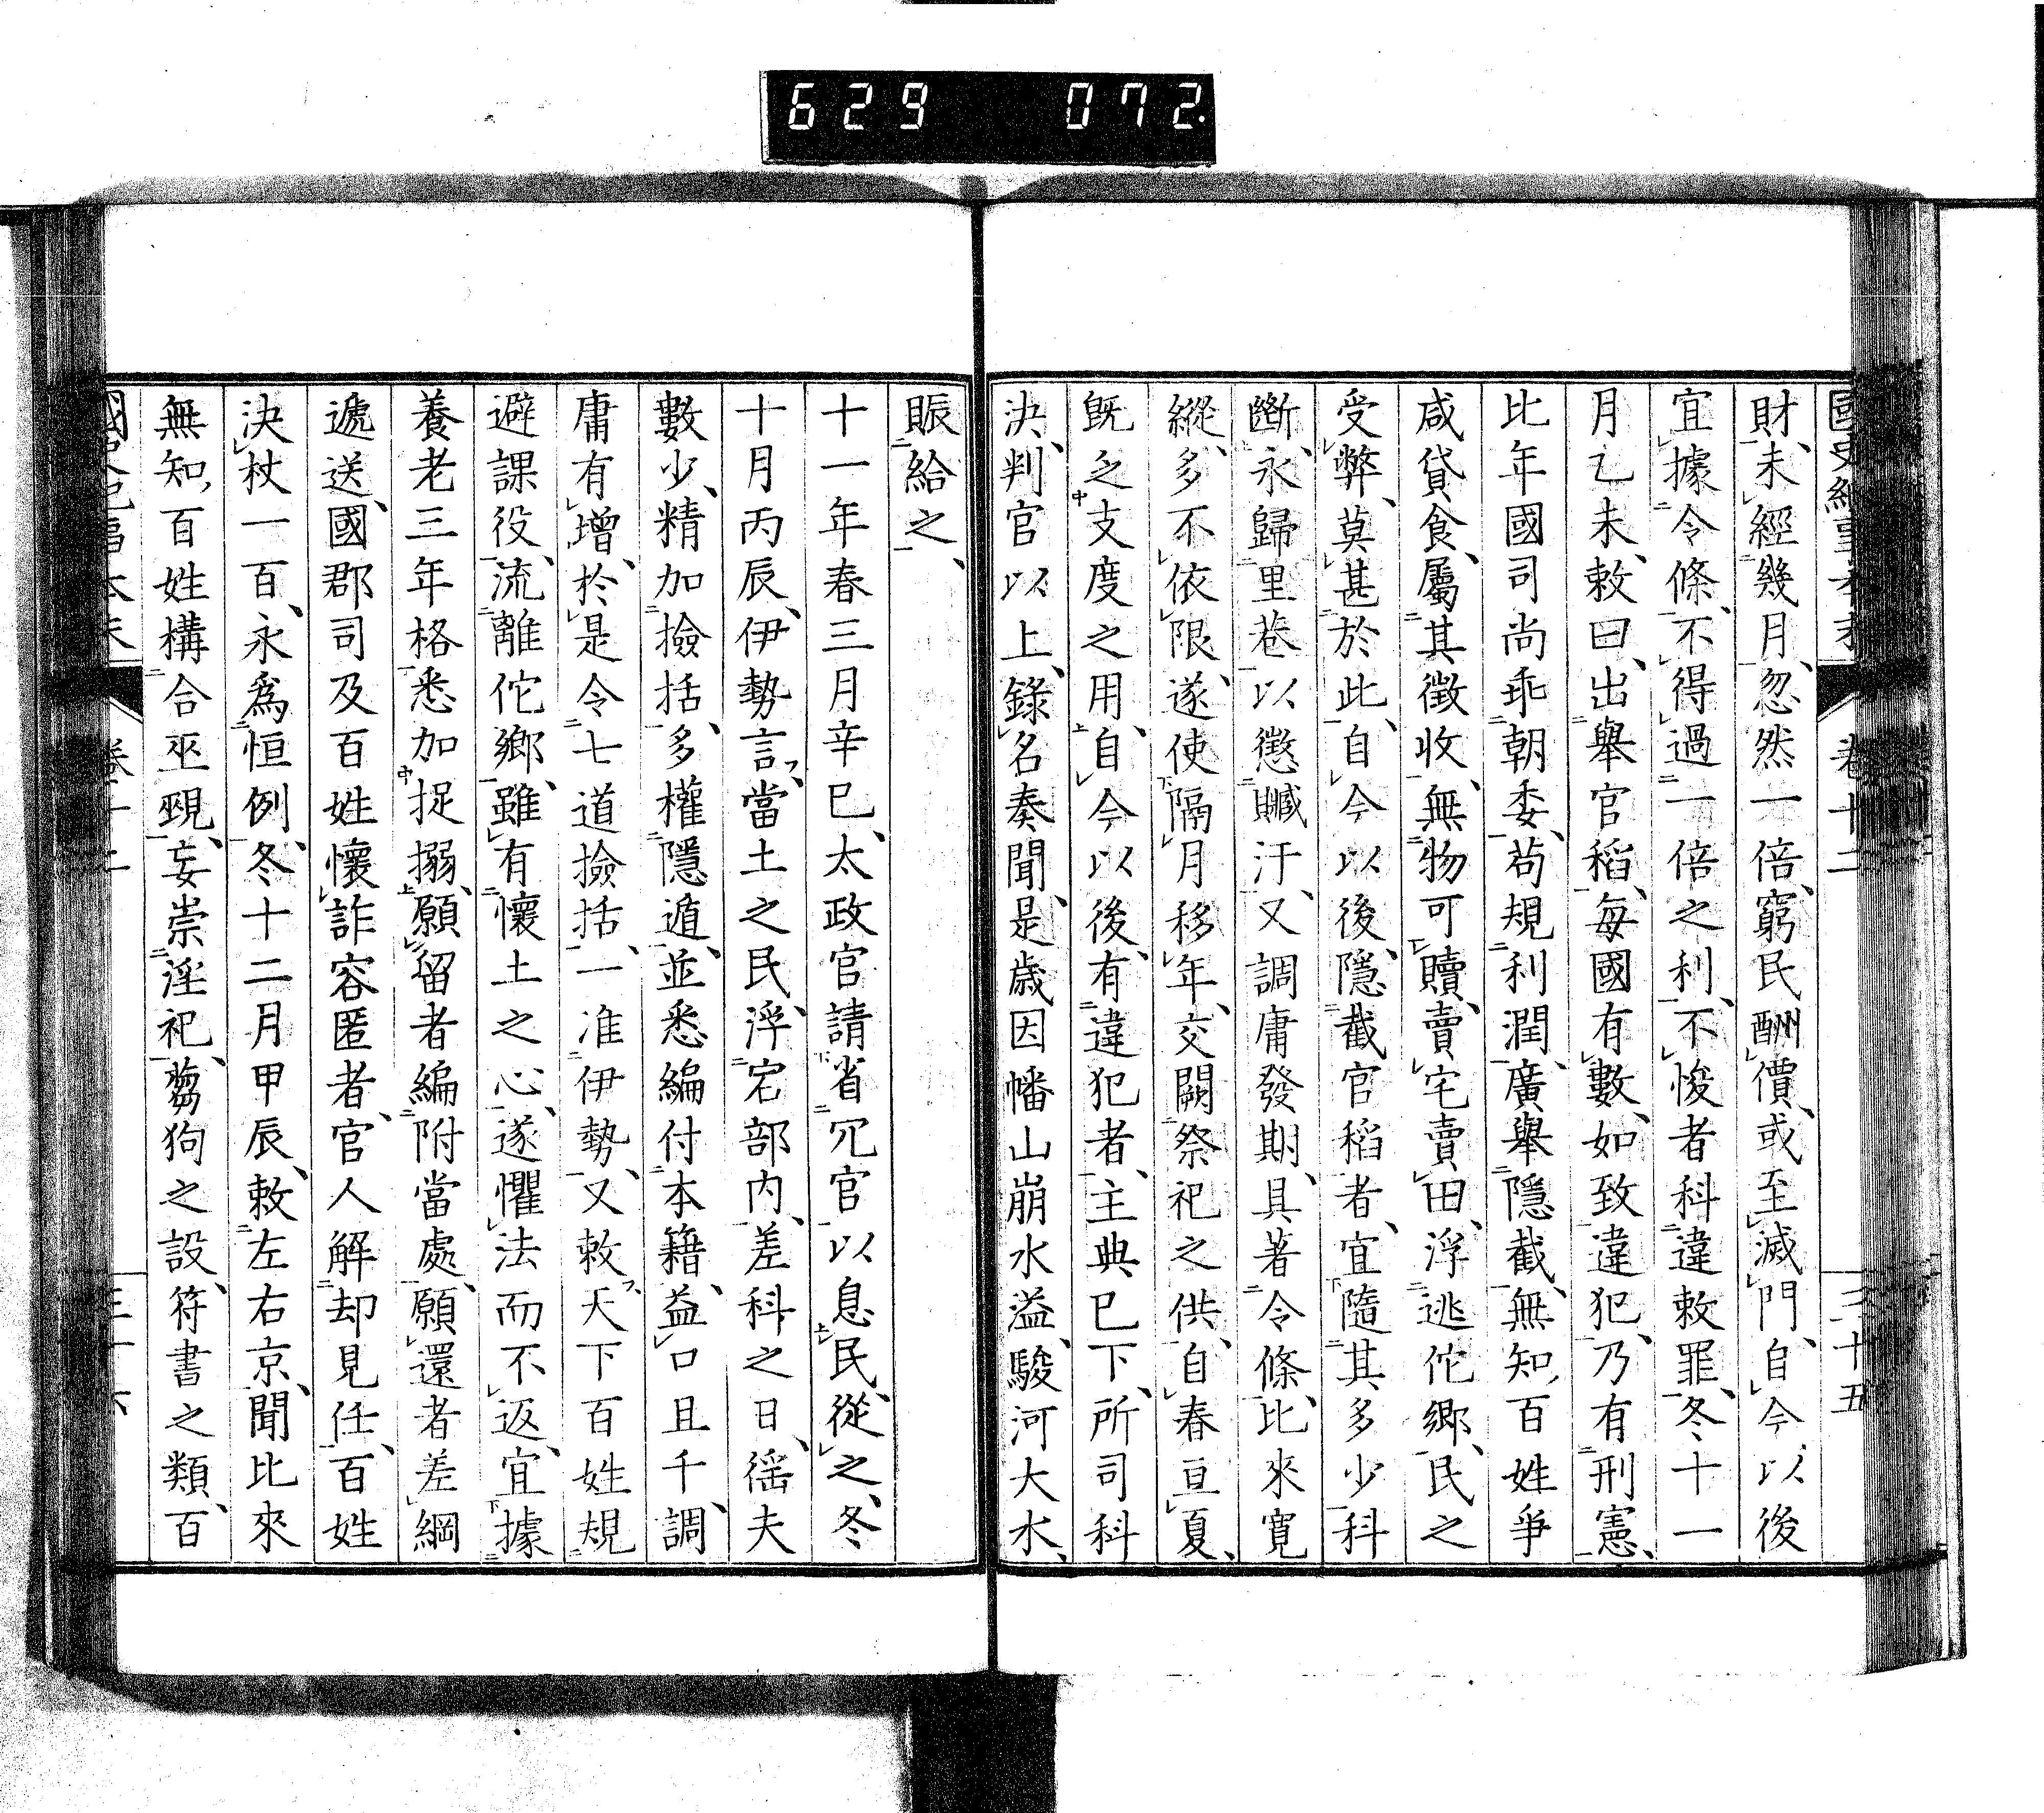 629 072
國史紀事本末 卷十二 三十五
財、未經幾月、忽然一倍、窮民酬價、或至滅門、自今以後
宜據令條、不得過一倍之利、不悛者科違敕罪、冬十一
月乙未、敕曰、出舉官稻、每國有數、如致違犯、乃有刑憲、
比年國司尚乖朝委、苟規利潤、廣舉隱截、無知百姓爭
咸貸食、屬其徵收、無物可贖、賣宅賣田、浮逃佗鄉、民之
受弊、莫甚於此、自今以後、隱截官稻者、宜隨其多少科
斷、永歸里巷、以懲贓汙、又調庸發期、具著令條、比來寬
縱、多不依限、遂使隔月移年、交闕祭祀之供、自春亘夏、
既乏支度之用、自今以後、有違犯者、主典已下、所司科
決、判官以上、錄名奏聞、是歲因幡山崩水溢、駿河大水、
賑給之、
十一年春三月辛巳、太政官請省冗官以息民、從之、冬
十月丙辰、伊勢言、當土之民、浮宕部內、差科之日、徭夫
數少、精加撿括、多權隱遁、並悉編付本籍、益口且千、調
庸有增、於是令七道撿括、一准伊勢、又敕天下百姓規
避課役、流離佗鄉、雖有懷土之心、遂懼法而不返、宜據
養老三年格悉加捉搦、願留者編附當處、願還者差綱
遞送、國郡司及百姓懷詐容匿者、官人解却見任、百姓
決杖一百、永爲恒例、冬十二月甲辰、敕左右京、聞比來
無知百姓構合巫覡、妄崇淫祀、蒭狗之設、符書之類、百
卷十二 三十六